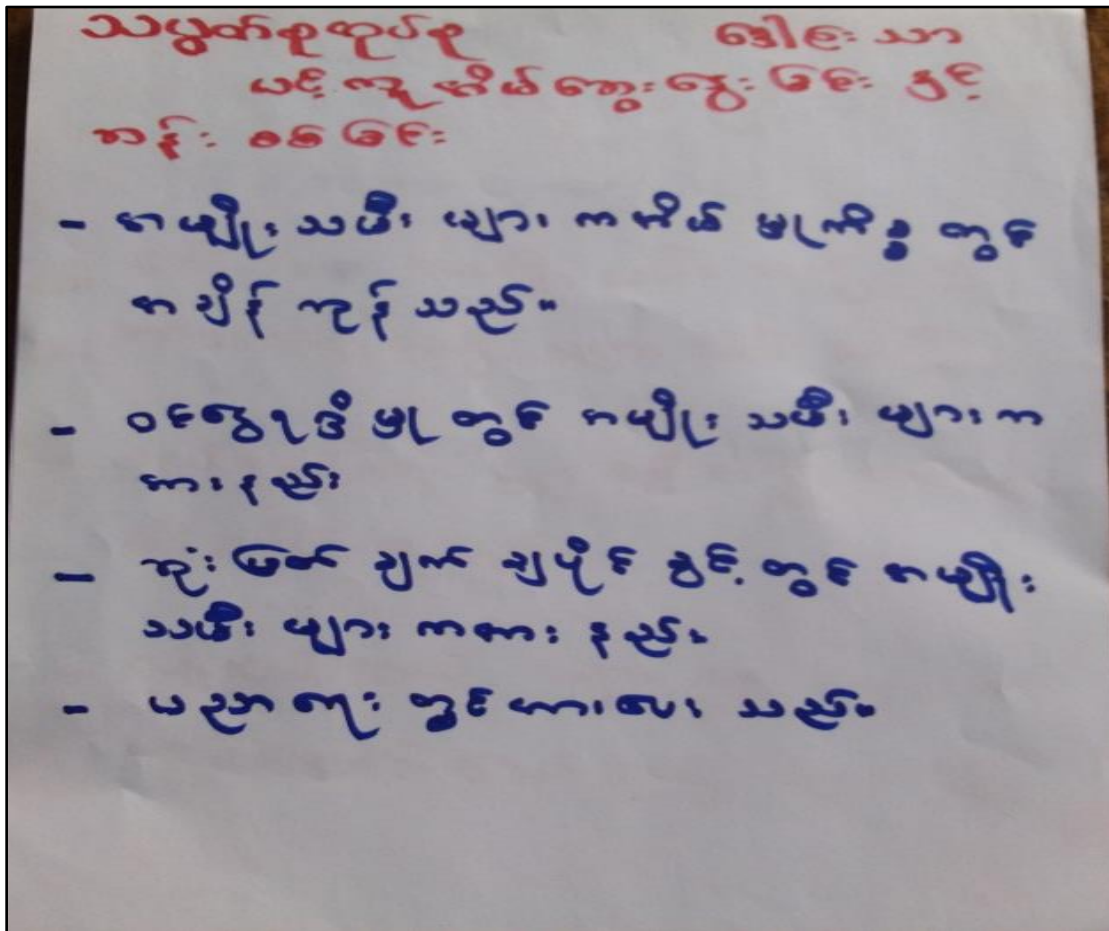 သပွတ်စုထုပ်စု ဒေါင်းသာ
ပင့်ကူအိမ်ဆွေးနွေးခြင်း နှင့်
ဆန်းစစ်ခြင်း
- အမျိုးသမီးများကအိမ်မှုကိစ္စတွင်
အချိန်ကုန်သည်။
- ဝင်ငွေရဖို့မှုတွင် အမျိုးသမီးများက
အားနည်း
- ဆုံးဖြတ်ချက်ချပိုင်ခွင့်တွင် အမျိုး
သမီးများကအားနည်း
- ပညာရေးတွင်အားပေးသည်။